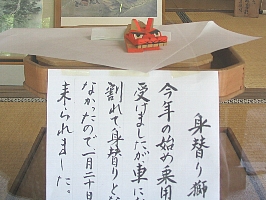 身替り獅
今年の始め乗用
受しましたが車に
割れて身替りと
なかったので一月二十日
来られました。